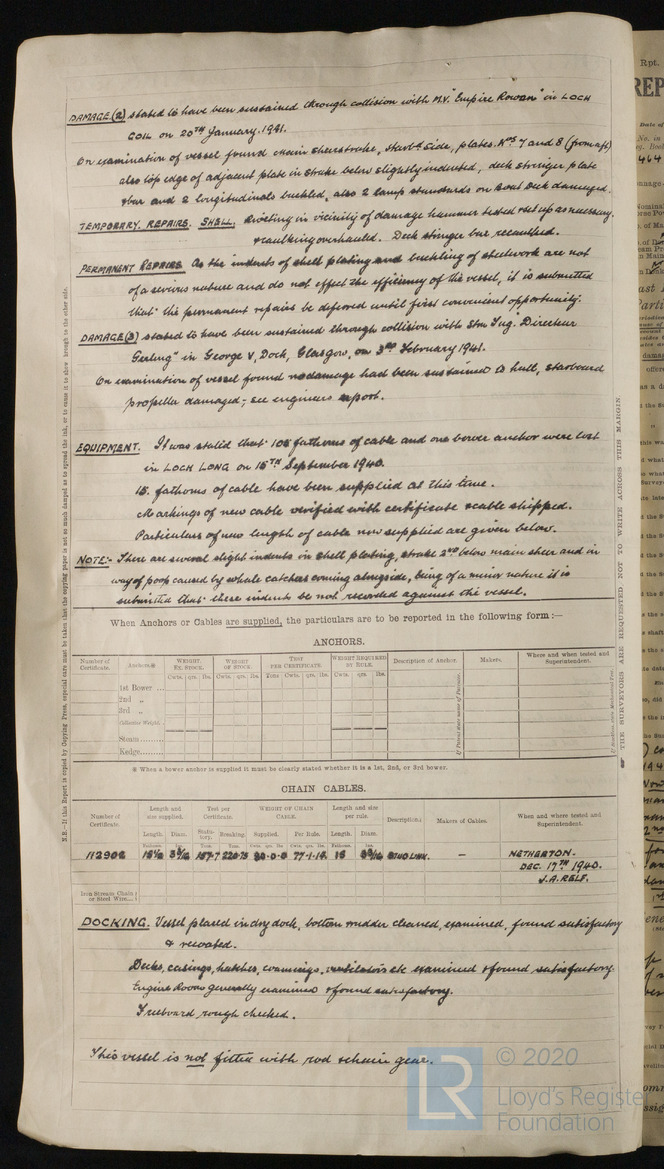 DAMAGE (2) stated to have been sustained through collision with M.V. "Empire Rowan" in LOCH
GOIL on 20TH January, 1941.
On examination of vessel found main sheerstrake, starbd. side, plates Nos 7 and 8 (from aft)
also top edge of adjacent plate in strake below slightly indented, deck stringer plate
& bar and 2 longitudinals buckled, also 2 lamp standards on Boat Deck damaged.
TEMPORARY REPAIRS. SHELL. Riveting in vicinity of damage hammer tested & set up as necessary.
& caulking overhauled. Deck stringer bar recaulked.
PERMANENT REPAIRS As the indents of shell plating and buckling of steelwork are not
of a serious nature and do not effect the efficiency of the vessel, it is submitted
that the permanent repairs be deferred until first convenient opportunity.
DAMAGE (3) stated to have been sustained through collision with Stm Tug. "Directeur
Gerling" in George V, Dock, Glasgow, on 3RD February 1941.
On examination of vessel found no damage had been sustained to hull, starboard
propeller damaged; see engineers report.
EQUIPMENT. It was stated that 105 fathoms of cable and one bower anchor were lost
in LOCH LONG on 15TH September 1940.
15 fathoms of cable have been supplied at this time.
Markings of new cable verified with certificate & cable shipped.
Particulars of new length of cable now supplied are given below.
NOTE:- There are several slight indents in shell plating, strake 2ND below main sheer and in
way of poop caused by whale catchers coming alongside, being of a minor nature it is
submitted that these indents be not recorded against the vessel.
When Anchors or Cables are supplied, the particulars are to be reported in the following form :—
ANCHORS.
Number of Certificate. Anchors.* WEIGHT. EX. STOCK. WEIGHT OF STOCK. TEST PER CERTIFICATE. WEIGHT REQUIRED BY RULE. Description of Anchor. Makers. Where and when tested and Superintendent.
Cwts. qrs. lbs. Cwts. qrs. lbs. Tons Cwts. qrs. lbs. Cwts. qrs. lbs.
1st Bower ...
2nd „
3rd „
Collective Weight.
Stream.......
Kedge........
If Patent state name of Patentee.
* When a bower anchor is supplied it must be clearly stated whether it is a 1st, 2nd, or 3rd bower.
CHAIN CABLES.
Number of Certificate. Length and size supplied. Test per Certificate. WEIGHT OF CHAIN CABLE. Length and size per rule. Description. Makers of Cables. When and where tested and Superintendent.
Length. Diam. Statutory. Breaking. Supplied. Per Rule. Length. Diam.
112902 157.7 80.0.0 77.1.14 15 STUD LINK. — NETHERTON.
DEC. 17TH 1940.
J.A. RELF.
Iron Stream Chain or Steel Wire...
DOCKING. Vessel placed in dry dock, bottom & rudder cleaned, examined, found satisfactory
& recoated.
Decks, casings, hatches, coamings, ventilators etc examined & found satisfactory.
Engine Room generally examined & found satisfactory.
Freeboard rough checked.
This vessel is not fitted with rod & chain gear.
N.B.—If this Report is copied by Copying Press, especial care must be taken that the copying paper is not so much damped as to spread the ink, or to cause it to show through to the other side.
THE SURVEYORS ARE REQUESTED NOT TO WRITE ACROSS THIS MARGIN.
Rpt.
REP
LR
© 2020
Lloyd's Register
Foundation